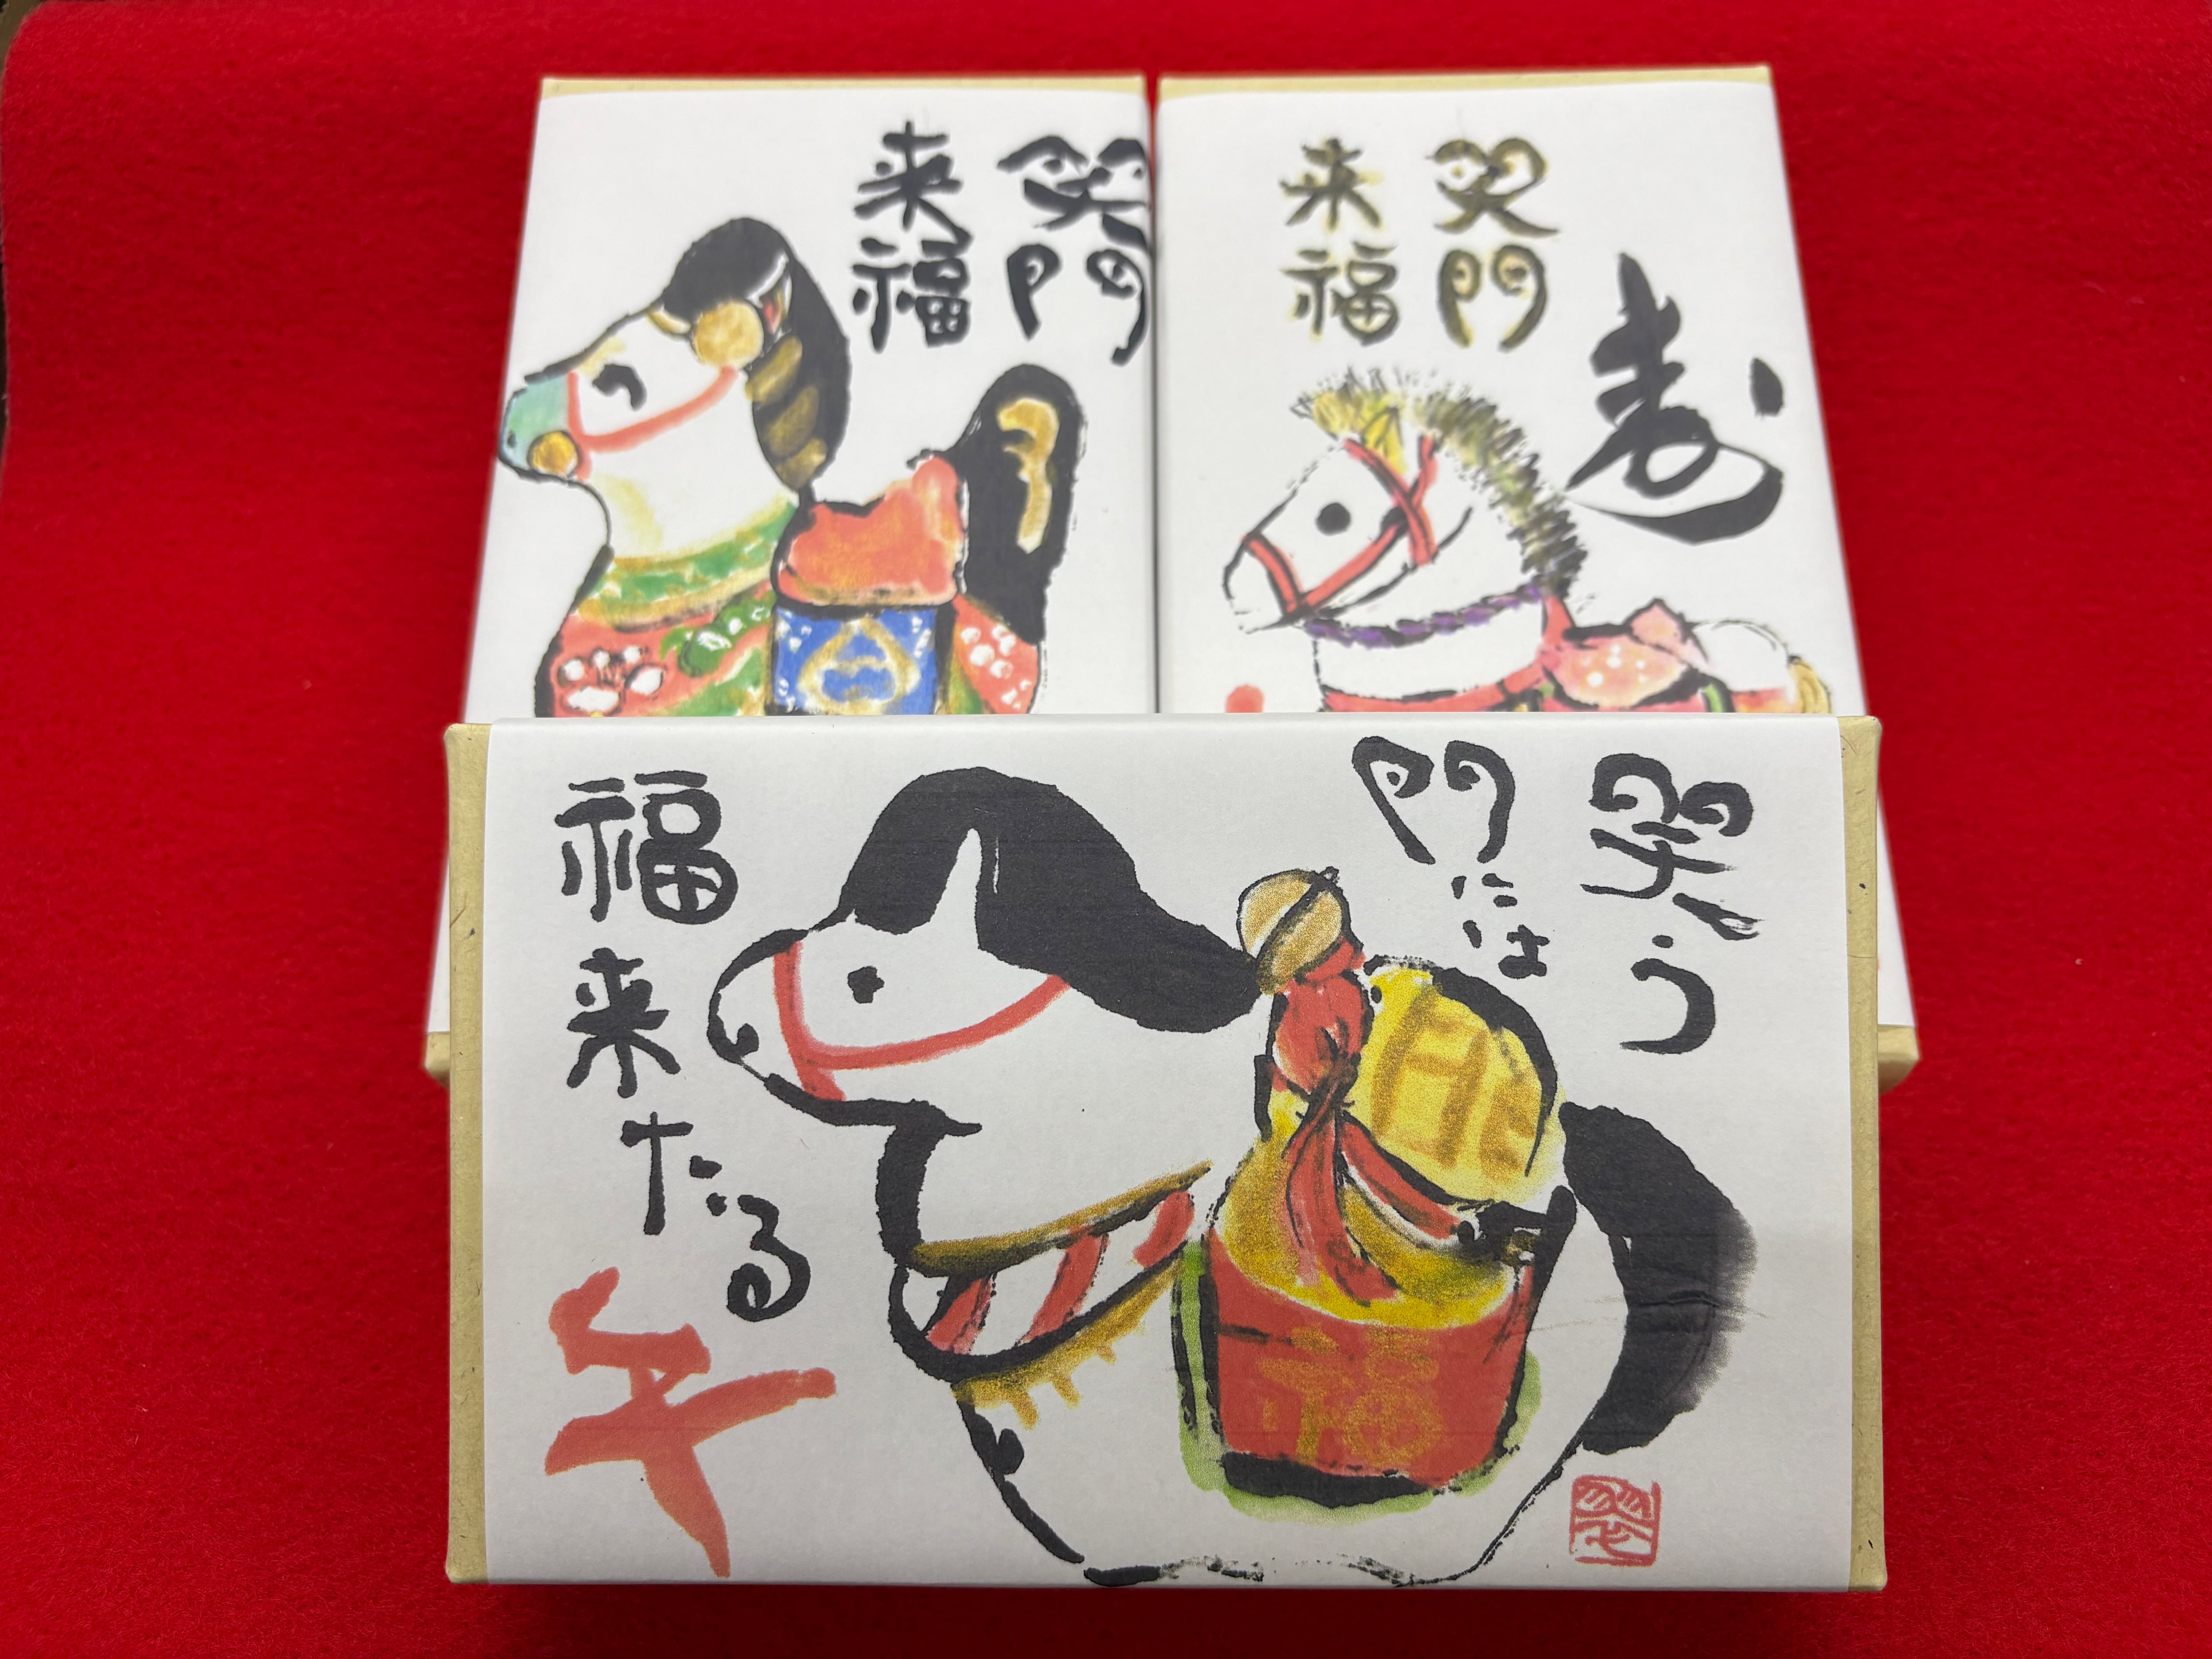 笑門
来福
寿
笑門
来福
笑う
門には
福来たる
午
福